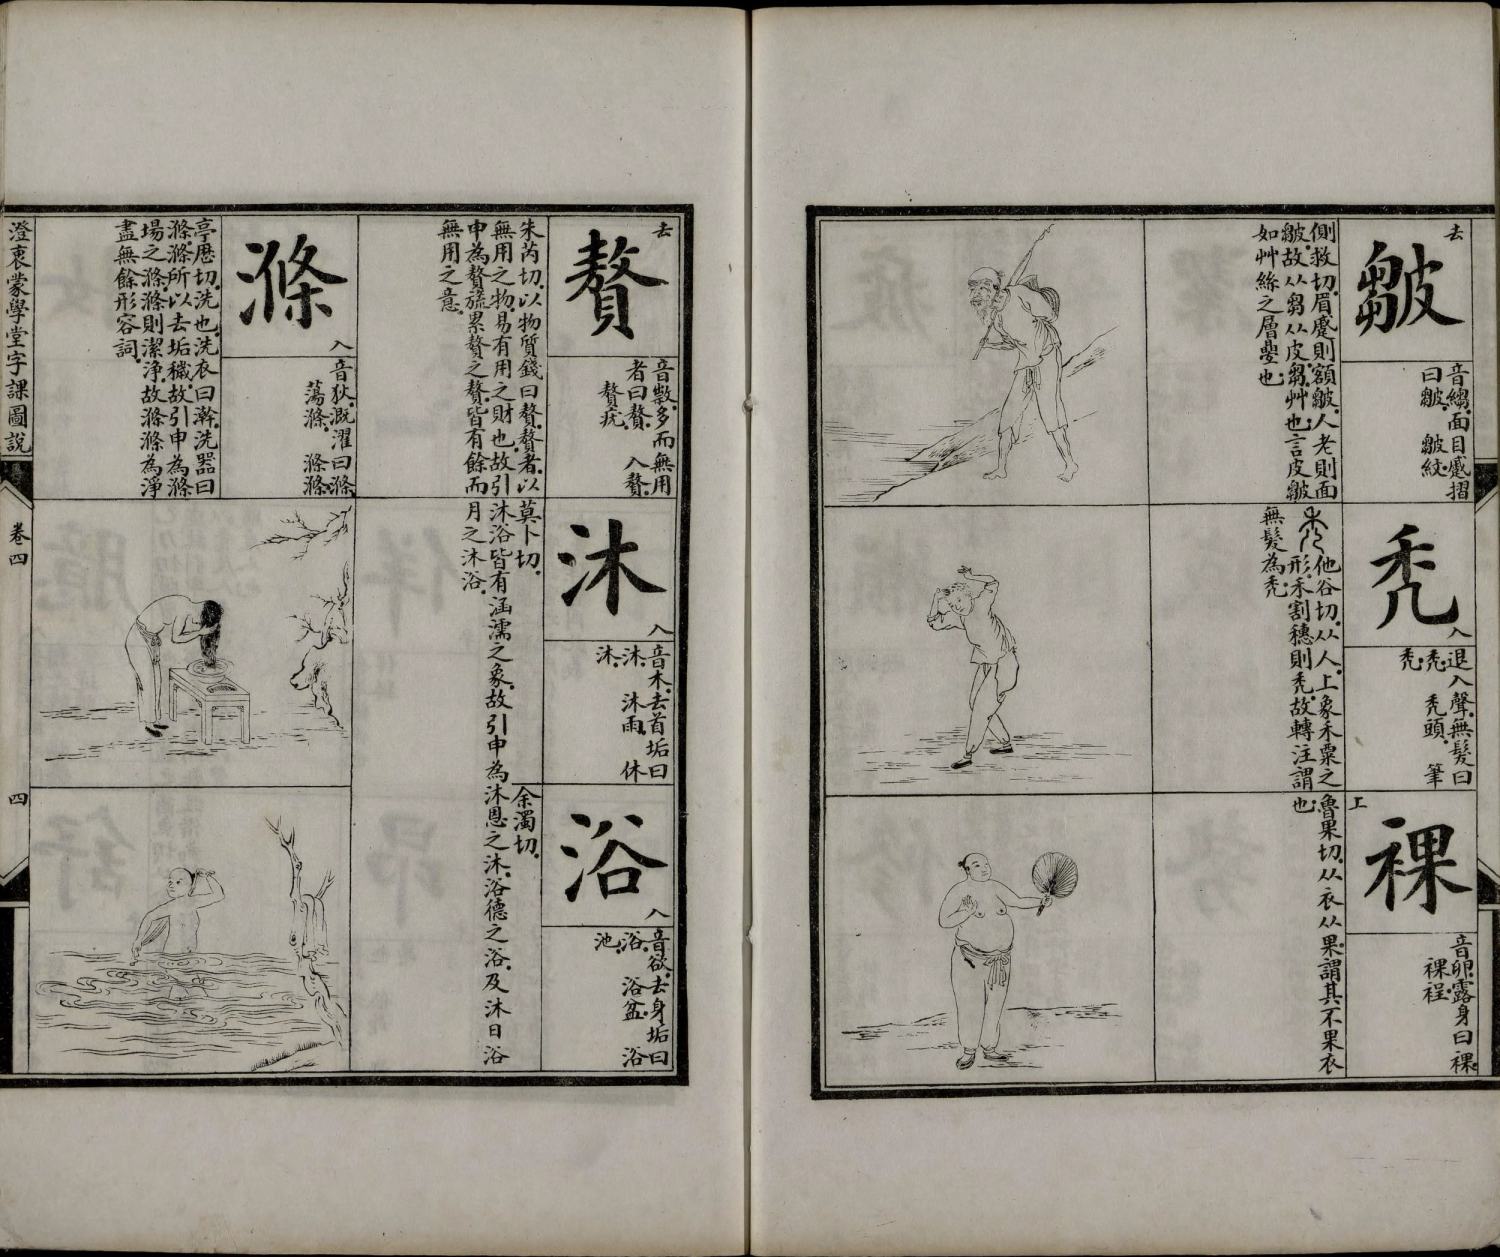 去
皺
音縐.面目蹙摺
曰皺.　皺紋
側救切.眉蹙則額皺.人老則面
皺.故从芻从皮.芻.艸也.言皮皺
如艸絲之層疊也
禿
入
退入聲.無髮曰
禿.　禿頭.　筆
禿
他谷切.从人.上象禾粟之
形.禾割穗則禿.故轉注謂
無髮為禿.
上
裸
音卵.露身曰裸.
裸裎
魯果切.从衣从果.謂其不果衣
也
去
贅
音數.多而無用
者曰贅.　入贅.
贅疣
朱芮切.以物質錢曰贅.贅者.以
無用之物.易有用之財也.故引
申為贅旒累贅之贅.皆有餘而
無用之意.
沐
入
音木.去首垢曰
沐.　沐雨.　休
沐
莫卜切.
浴
入
音欲.去身垢曰
浴.　浴盆.　浴
池
余濁切.
沐浴皆有涵濡之象.故引申為沐恩之沐.浴德之浴.及沐日浴
月之沐浴.
滌
入
音狄.溉濯曰滌
蕩滌.　滌滌.
亭歷切.洗也.洗衣曰澣.洗器曰
滌.滌所以去垢穢.故引申為滌
場之滌.滌則潔淨.故滌滌為淨
盡無餘形容詞.
澄衷蒙學堂字課圖說
卷四
四